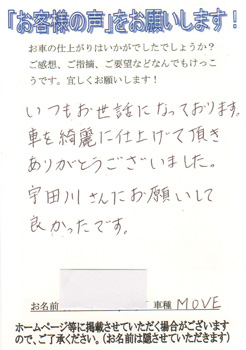 「お客様の声」をお願いします！
お車の仕上がりはいかがでしたでしょうか？
ご感想、ご指摘、ご要望などなんでもけっこ
うです。宜しくお願いします！
いつもお世話になっております。
車を綺麗に仕上げて頂き
ありがとうございました。
宇田川さんにお願いして
良かったです。
お名前 車種 MOVE
ホームページ等に掲載させていただく場合がございます
ので、ご了承ください。（お名前は隠させていただきます）